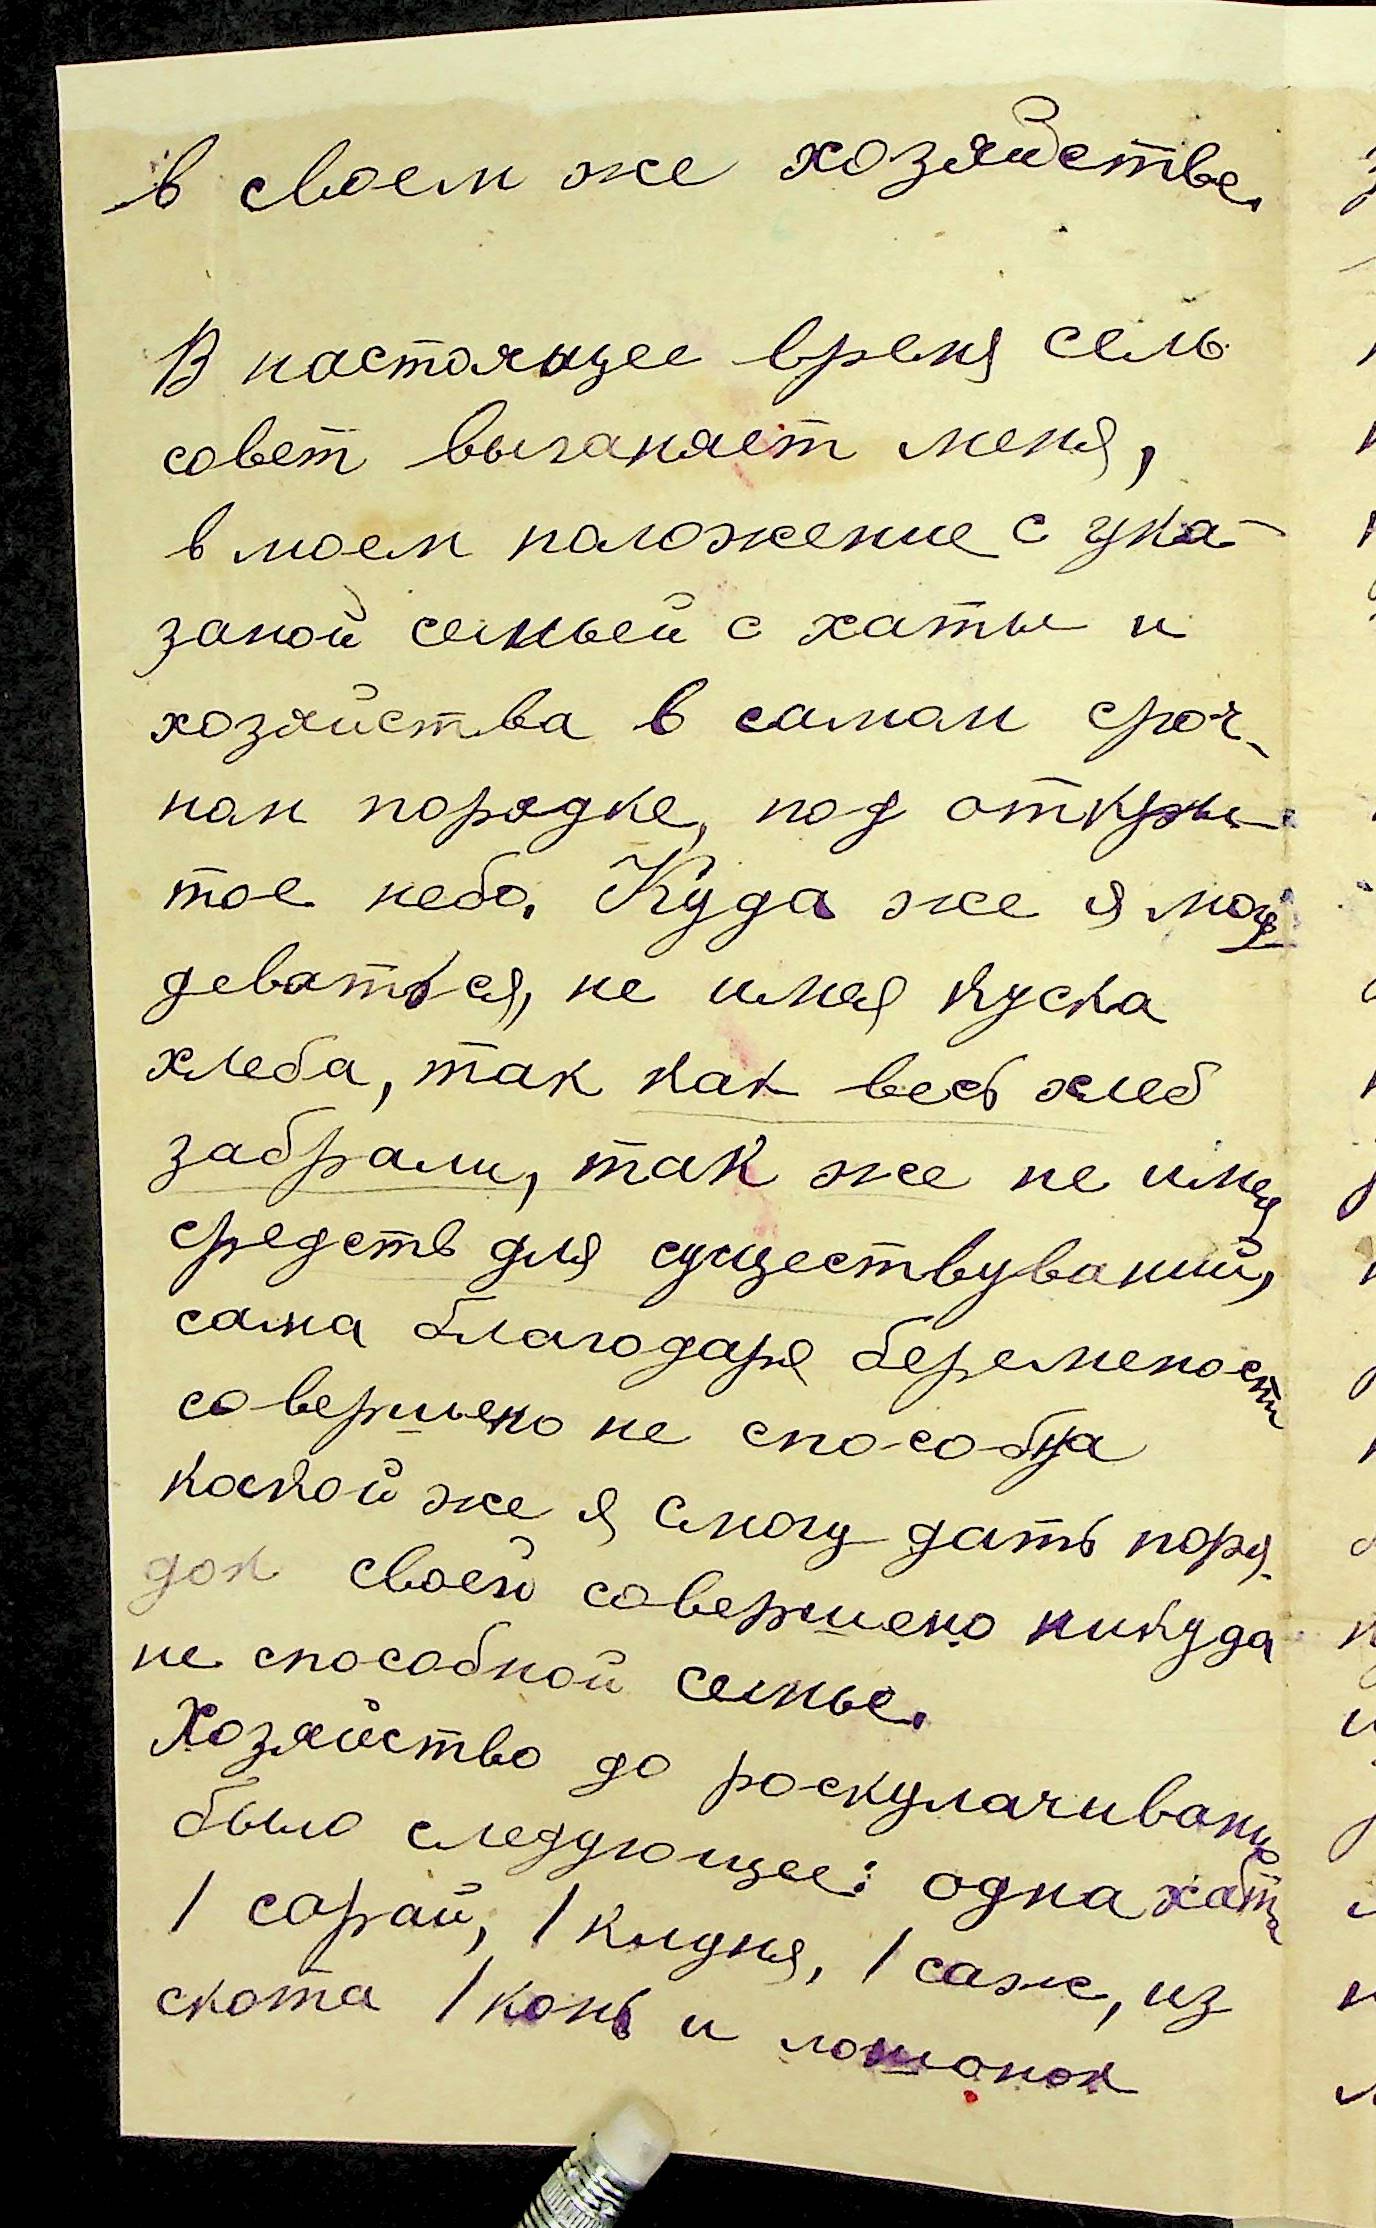 в своем же хозяйстве.
В настоящее время сель
совет выганяет меня,
в моем положение с ука-
заной семьей с хаты и
хозяйства в самом сроч-
нам порядке, под откры-
тое небо. Куда же я могу
деваться, не имея куска
хлеба, так как весь хлеб
забрали, так же не имея
средств для существуваний,
сама благодаря беремености
совершено не способна
каокой же я смогу дать поря-
док своей совершено никуда
не способной семье.
Хозяйство до роскулачивания
было следующее: одна хата
1 сарай, 1 клудня, 1 саж, из
скота 1 конь и лошонок